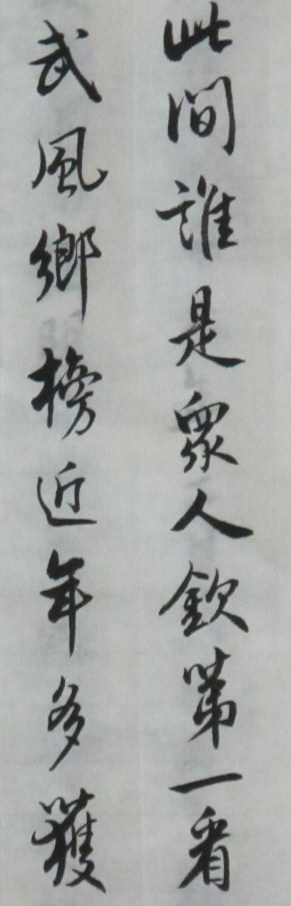 此間誰是眾人欽第一看
武風鄉榜近年多獲